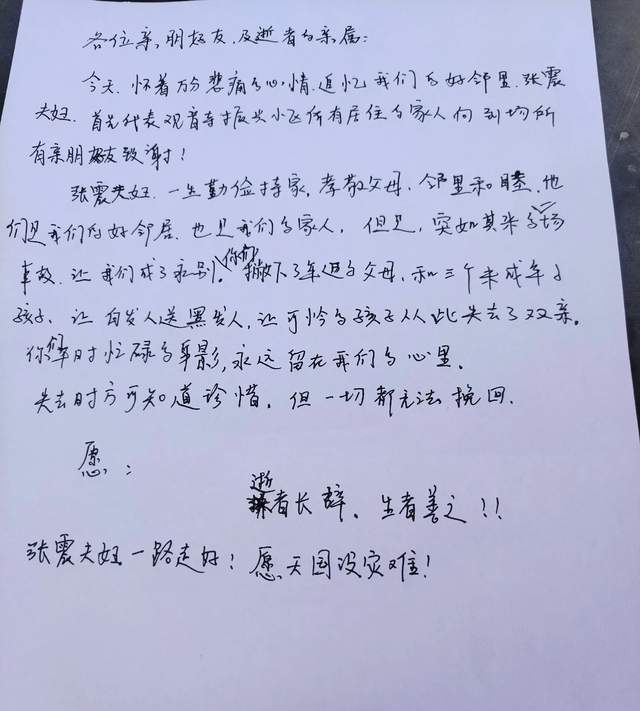 各位亲朋好友,及逝者的亲属:
今天.怀着万分悲痛的心情.追忆我们的好邻里.张震
夫妇.首先代表观音寺振兴小区所有居住的家人向到场所
有亲朋好友致谢!
张震夫妇.一生勤俭持家.孝敬父母.邻里和睦.他
们是我们的好邻居.也是我们的家人.但是,突如其来的一场
事故.让我们成了永别.你们撇下了年迈的父母,和三个未成年的
孩子.让白发人送黑发人,让可怜的孩子从此失去了双亲.
你们平时忙碌的身影,永远留在我们的心里.
失去时方可知道珍惜.但一切都无法挽回.
愿:
逝者长辞.生者善之!!
张震夫妇一路走好!愿天国没灾难!